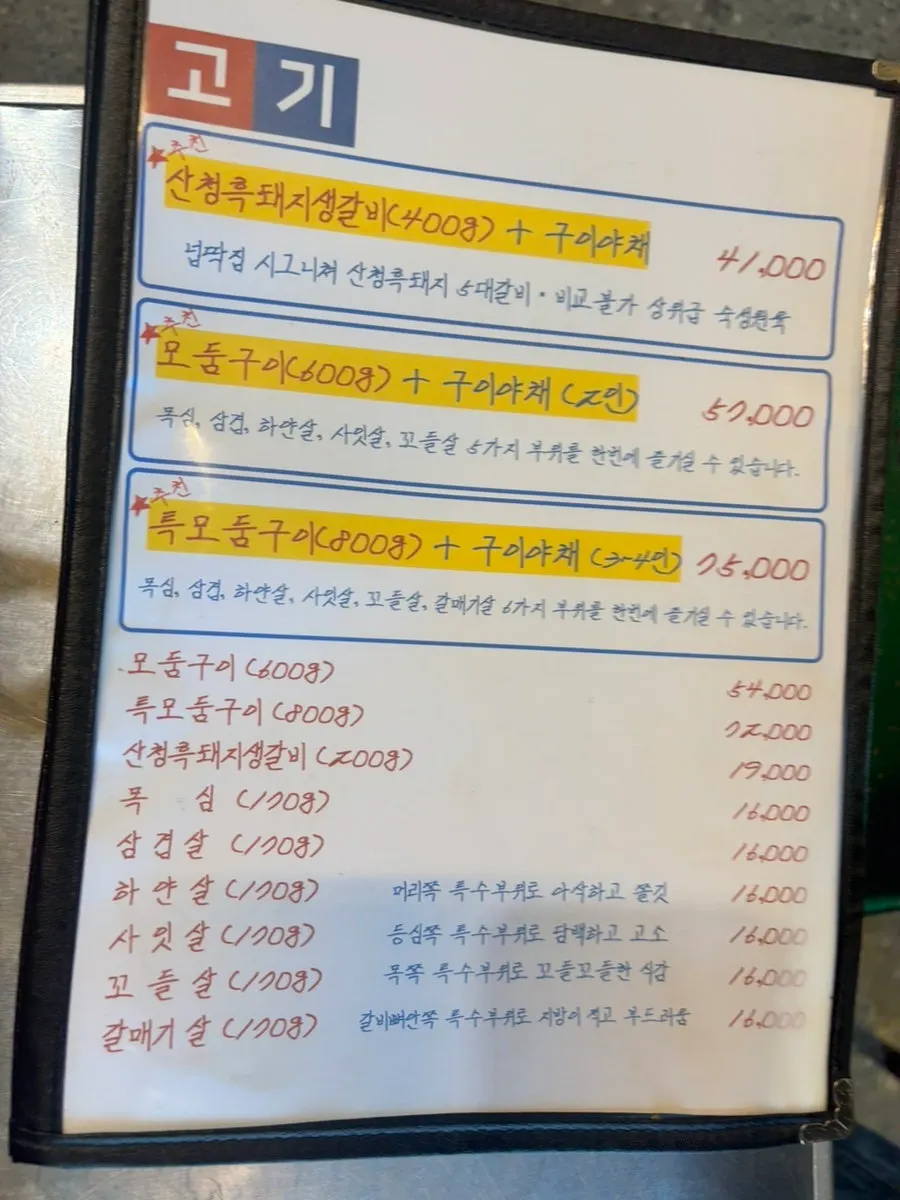 고기
추천
산청흑돼지생갈비(400g) + 구이야채 41,000
넙딱집 시그니쳐 산청흑돼지 5대갈비・비교불가 상위급 숙성원육
추천
모둠구이(600g) + 구이야채 (2인) 57,000
목심, 삼겹, 하얀살, 사잇살, 꼬들살 5가지 부위를 한번에 즐기실 수 있습니다.
추천
특모둠구이(800g) + 구이야채 (3~4인) 75,000
목심, 삼겹, 하얀살, 사잇살, 꼬들살, 갈매기살 6가지 부위를 한번에 즐기실 수 있습니다.
모둠구이 (600g) 54,000
특모둠구이 (800g) 72,000
산청흑돼지생갈비 (200g) 19,000
목심 (170g) 16,000
삼겹살 (170g) 16,000
하얀살 (170g) 머리쪽 특수부위로 아삭하고 쫄깃 16,000
사잇살 (170g) 등심쪽 특수부위로 담백하고 고소 16,000
꼬들살 (170g) 목쪽 특수부위로 꼬들꼬들한 식감 16,000
갈매기살 (170g) 갈비뼈안쪽 특수부위로 지방이 적고 부드러움 16,000